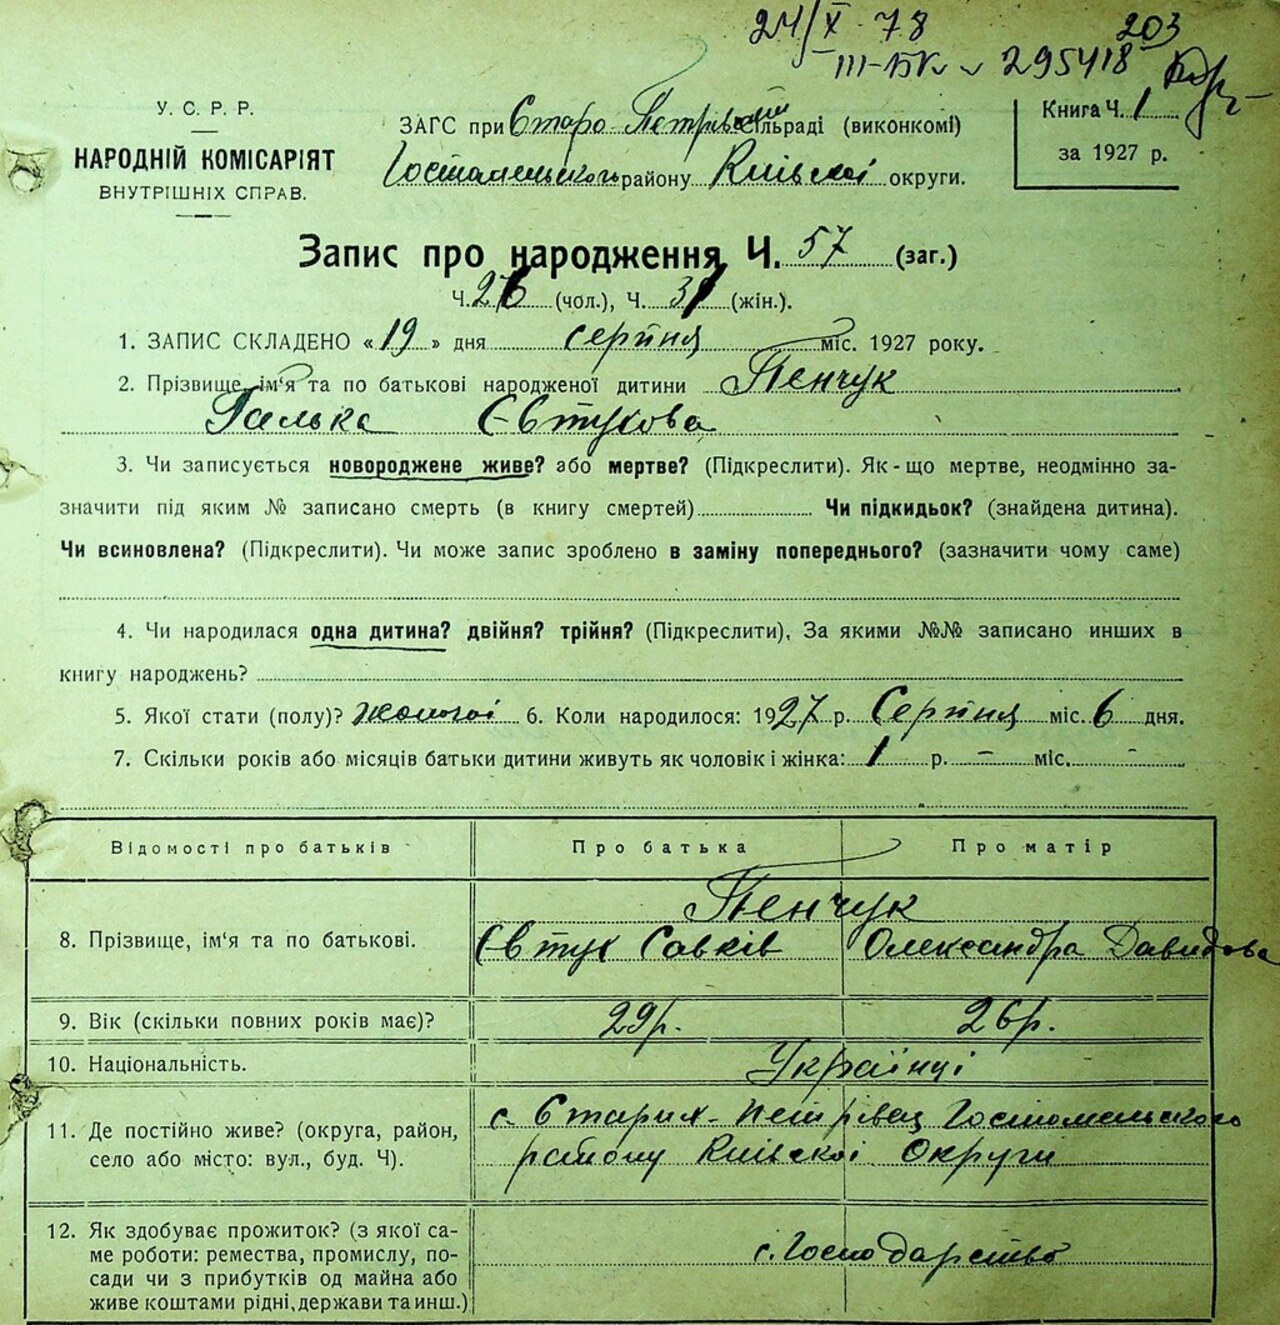 24/X 78
203
III-БК № 295418
У. С. Р. Р.
НАРОДНІЙ КОМІСАРІЯТ
ВНУТРІШНІХ СПРАВ.
ЗАГС при Старо-Петрівській сільраді (виконкомі)
Гостомельського району Київської округи.
Книга Ч. 1
за 1927 р.
Запис про народження Ч. 57 (заг.)
Ч. 26 (чол.), Ч. 31 (жін.).
1. ЗАПИС СКЛАДЕНО «19» дня серпня міс. 1927 року.
2. Прізвище, ім'я та по батькові народженої дитини Пенчук
Галька Євтухова
3. Чи записується новороджене живе? або мертве? (Підкреслити). Як-що мертве, неодмінно за-
значити під яким № записано смерть (в книгу смертей) Чи підкидьок? (знайдена дитина).
Чи всиновлена? (Підкреслити). Чи може запис зроблено в заміну попереднього? (зазначити чому саме)
4. Чи народилася одна дитина? двійня? трійня? (Підкреслити), За якими №№ записано инших в
книгу народжень?
5. Якої стати (полу)? жіночої 6. Коли народилося: 1927 р. Серпня міс. 6 дня.
7. Скільки років або місяців батьки дитини живуть як чоловік і жінка: 1 р. – міс. –
Відомості про батьків Про батька Про матір
Пенчук
8. Прізвище, ім'я та по батькові. Євтух Савків Олександра Давидова
9. Вік (скільки повних років має)? 29 р. 26 р.
10. Національність. Українці
11. Де постійно живе? (округа, район,
село або місто: вул., буд. Ч).
с. Старих-Петрівец Гостомельського
району Київської Округи
12. Як здобуває прожиток? (з якої са-
ме роботи: ремества, промислу, по-
сади чи з прибутків од майна або
живе коштами рідні, держави та инш.)
с. Господарство